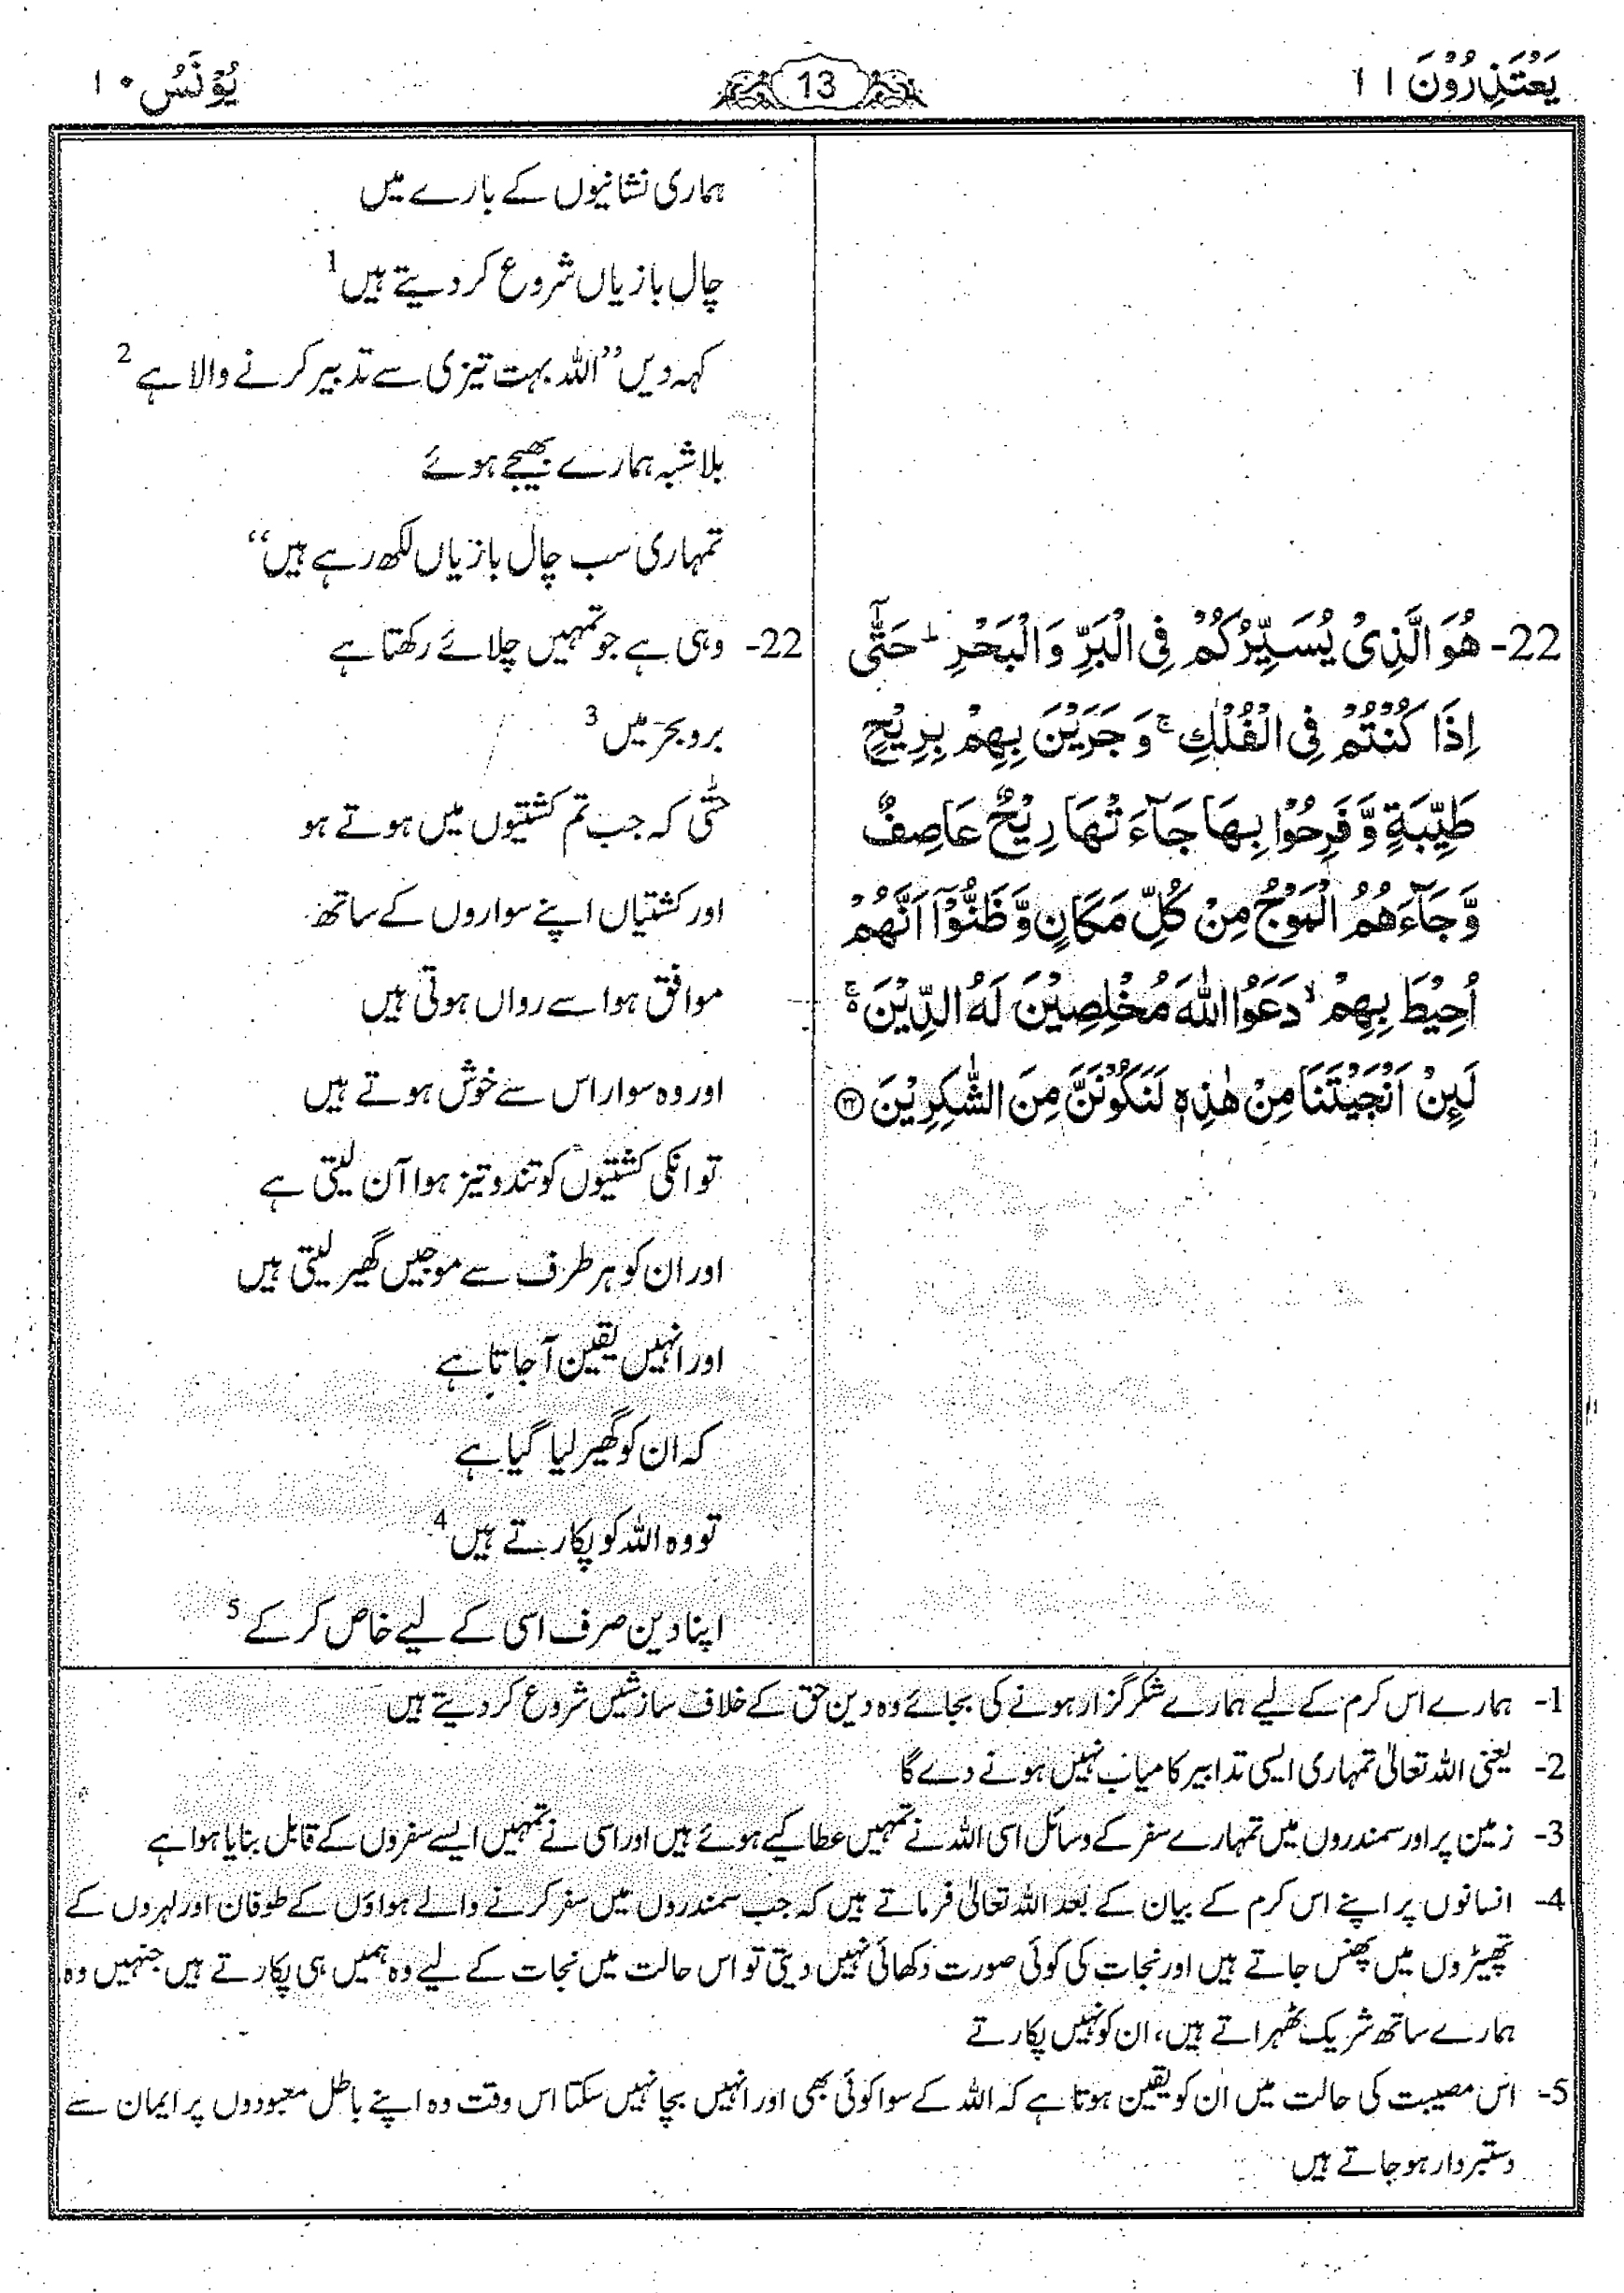 یَعْتَذِرُوْنَ ۱۱
13
یُوْنَس ۱۰
22- هُوَ الَّذِیْ یُسَیِّرُكُمْ فِی الْبَرِّ وَ الْبَحْرِ ؕ حَتّٰۤی
اِذَا كُنْتُمْ فِی الْفُلْكِ ۚ وَ جَرَیْنَ بِهِمْ بِرِیْحٍ
طَیِّبَةٍ وَّ فَرِحُوْا بِهَا جَآءَ تْهَا رِیْحٌ عَاصِفٌ
وَّ جَآءَهُمُ الْمَوْجُ مِنْ كُلِّ مَكَانٍ وَّ ظَنُّوْۤا اَنَّهُمْ
اُحِیْطَ بِهِمْ ۙ دَعَوُا اللّٰهَ مُخْلِصِیْنَ لَهُ الدِّیْنَ ۚ۬
لَىِٕنْ اَنْجَیْتَنَا مِنْ هٰذِهٖ لَنَكُوْنَنَّ مِنَ الشّٰكِرِیْنَ ۲۲
ہماری نشانیوں کے بارے میں
چال بازیاں شروع کر دیتے ہیں 1
کہہ دیں ’’اللہ بہت تیزی سے تدبیر کرنے والا ہے 2
بلاشبہ ہمارے بھیجے ہوئے
تمہاری سب چال بازیاں لکھ رہے ہیں‘‘
22- وہی ہے جو تمہیں چلائے رکھتا ہے
بر و بحر میں 3
حتّٰی کہ جب تم کشتیوں میں ہوتے ہو
اور کشتیاں اپنے سواروں کے ساتھ
موافق ہوا سے رواں ہوتی ہیں
اور وہ سوار اس سے خوش ہوتے ہیں
تو انکی کشتیوں کو تند و تیز ہوا آن لیتی ہے
اور ان کو ہر طرف سے موجیں گھیر لیتی ہیں
اور انہیں یقین آ جاتا ہے
کہ ان کو گھیر لیا گیا ہے
تو وہ اللہ کو پکارتے ہیں 4
اپنا دین صرف اسی کے لیے خاص کر کے 5
1- ہمارے اس کرم کے لیے ہمارے شکرگزار ہونے کی بجائے وہ دین حق کے خلاف سازشیں شروع کر دیتے ہیں
2- یعنی اللہ تعالیٰ تمہاری ایسی تدابیر کامیاب نہیں ہونے دے گا
3- زمین پر اور سمندروں میں تمہارے سفر کے وسائل اسی اللہ نے تمہیں عطا کیے ہوئے ہیں اور اسی نے تمہیں ایسے سفروں کے قابل بنایا ہوا ہے
4- انسانوں پر اپنے اس کرم کے بیان کے بعد اللہ تعالیٰ فرماتے ہیں کہ جب سمندروں میں سفر کرنے والے ہواؤں کے طوفان اور لہروں کے
تھپیڑوں میں پھنس جاتے ہیں اور نجات کی کوئی صورت دکھائی نہیں دیتی تو اس حالت میں نجات کے لیے وہ ہمیں ہی پکارتے ہیں جنہیں وہ
ہمارے ساتھ شریک ٹھہراتے ہیں، ان کو نہیں پکارتے
5- اس مصیبت کی حالت میں ان کو یقین ہوتا ہے کہ اللہ کے سوا کوئی بھی اور انہیں بچا نہیں سکتا اس وقت وہ اپنے باطل معبودوں پر ایمان سے
دستبردار ہو جاتے ہیں